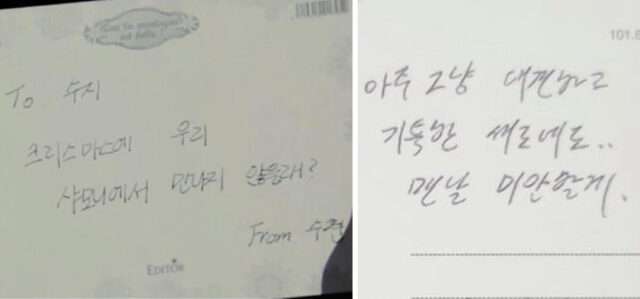 Que la montagne
est belle!
To. 수지
크리스마스에 우리
샤모니에서 만나지 않을래?
From 수현
EDITOR
101.8
아주 그냥 대견하고
기특한 써로에도..
맨날 미안할게.